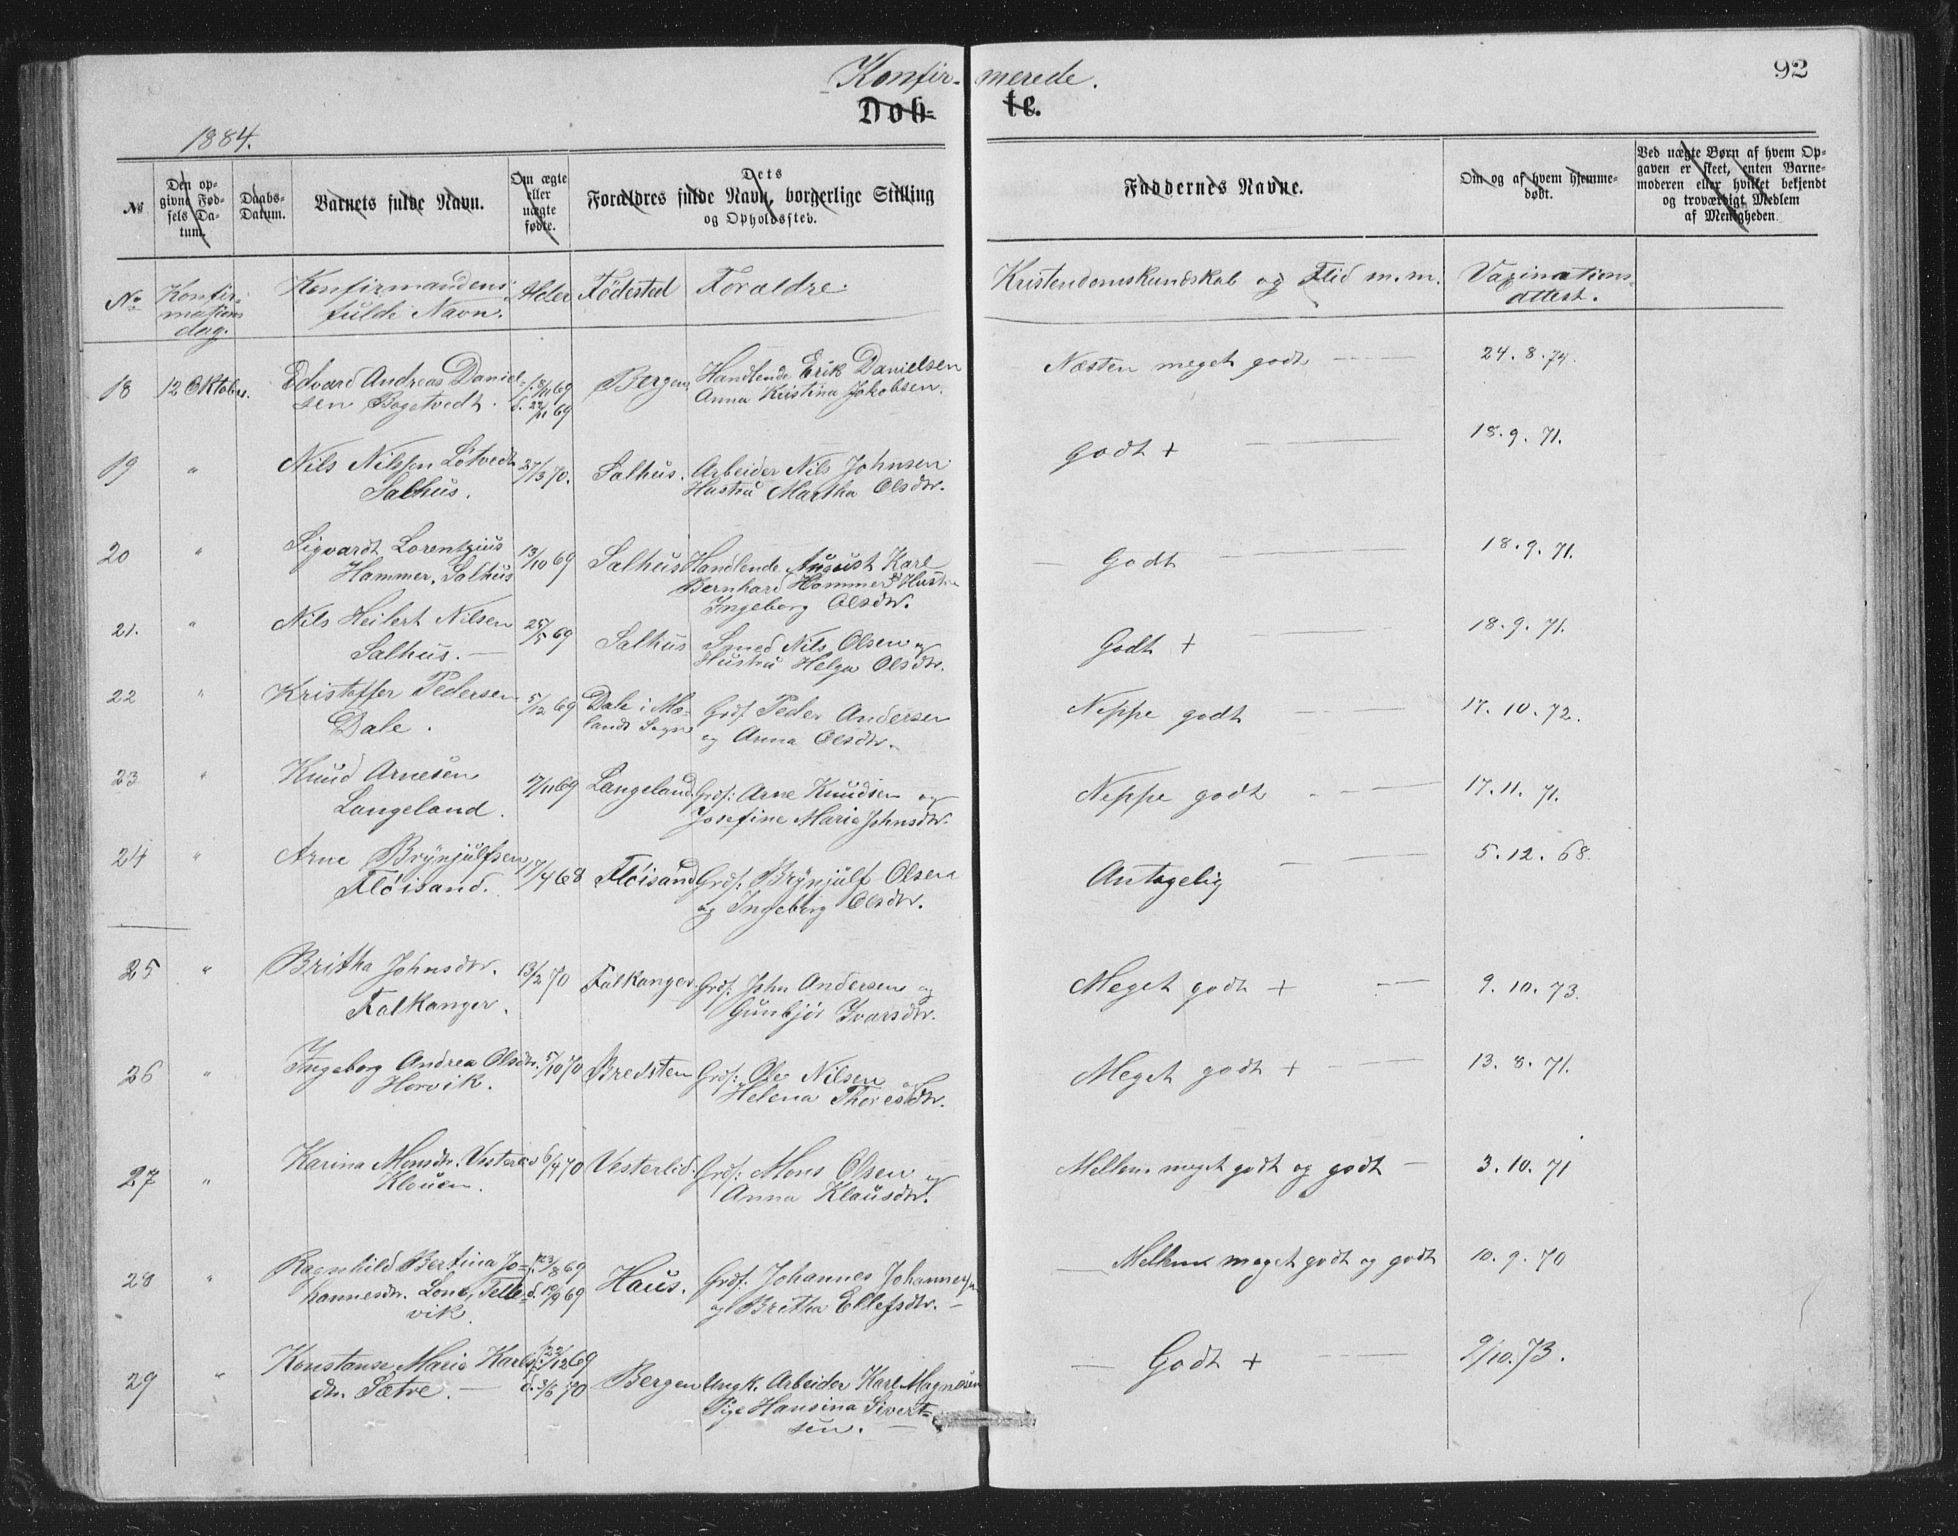 Konfir- merede.
92
Døb- te.
1884.
№
Den opgivne Fødsels Datum.
Daabs-Datum.
Barnets fulde Navn.
Om ægte eller uægte fødte.
Dets Forældres fulde Navn, borgerlige Stilling og Opholdssted.
Faddernes Navne.
Om og af hvem hjemmedøbt.
Ved uægte Børn af hvem Opgaven er skeet, enten Barnemoderen eller hvilket bekjendt og troværdigt Medlem af Menigheden.
No
Konfirmations dag.
Konfirmandens fulde Navn.
Alder
Fødested
Forældre.
Kristendomskundskab og Flid m.m.
Vaxinations attest.
18 12 Oktober. Edvard Andreas Daniel- f. 8/11 69 Bergen Handlende Erik Danielsen Næsten meget godt 24.8.74.
sen Bogetvedt. d. 22/11 69 Anna Kristina Jakobsen.
19 " Nils Nilssen Løtvedt 27/3 70. Salhus. Arbeider Nils Johnsen godt + 18.9.71.
Salhus. Hustru Martha Olsdtr.
20 " Sigvardt Lorentzius 13/10 69 Salhus Handlende August Karl Godt 18.9.71.
Hammer, Salhus Bernhard Hammer & Hustru
Ingeborg Olsdtr.
21. " Nils Heilert Nilsen 25/5 69 Salhus Smed Nils Olsen og Godt + 18.9.71.
Salhus. Hustru Helga Olsdtr.
22 " Kristoffer Pedersen 5/12 69 Dale i Mæ- Grdf. Peder Andersen Neppe godt 17.10.72.
Dale. lands Sogn og Anna Olsdtr.
23 " Knud Arnesen 7/11 69 Langeland Grdf: Arne Knudsen og Neppe godt 17.11.71.
Langeland. Josefine Marie Johnsdtr.
24 " Arne Brynjulfsen 17/4 68 Fløisand Grdf: Brynjulf Olsen Antagelig 5.12.68.
Fløisand. og Ingeborg Olsdtr.
25 " Britha Johnsdtr. 13/2 70 Falkanger Grdf: John Andersen og Meget godt + 9.10.73.
Falkanger. Gunbjør Ivarsdtr.
26 " Ingeborg Andrea Olsdtr. 5/10 70 Bredsten Grdf: Ole Nilsen og Meget godt + 13.8.71.
Horvik. Helena Thoresdtr.
27 " Karina Monsdtr. Vesterlid 6/4 70 Vesterlid. Grdf: Mons Olsen og Mellem meget godt og godt 3.10.71
Klouen. Anna Klausdtr.
28 " Ragnhild Bertina Jo- f. 23/8 69 Haus. Grdf. Johannes Johannessen Mellem meget godt og godt 10.9.70
hannesdtr. Lone, Telle- d. 19/9 69 og Britha Ellefsdtr.
vik.
29 " Konstanse Marie Karls- f. 22/12 69 Bergen Ungk. Arbeider Karl Magnusen Godt + 9/10.73.
dtr. Sætre. d. 3/6 70 Pige Hansina Sivert-
sen.